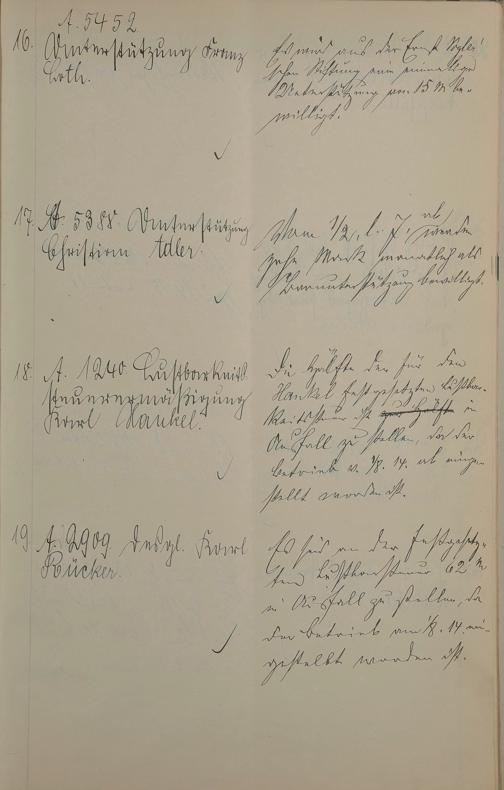 A. 5452
16. Unterstützung Franz
Es wird aus der Ernst
schen Stiftung eine einmalige
Unterstützung von 15 M be-
willigt.
17. A. 5388. Unterstützung
Christian Adler.
Vom 1/2. l. J. ab werden
zehn Mark monatlich als
Barunterstützung bewilligt.
18. A. 1240 Lustbarkeits-
steuerermäßigung
Karl Hankel.
Die Hälfte der für den
Hankel festgesetzten Lustbar-
keitssteuer ist zur Hälfte in
Ausfall zu stellen, da der
Betrieb v. 1/8. 14. ab einge-
stellt worden ist.
19. A. 2909 desgl. Karl
Rücker.
Es sei an der festgesetz-
ten Lustbarksteuer 62 M
in Ausfall zu stellen, da
der Betrieb am 1/8. 14. ein-
gestellt worden ist.